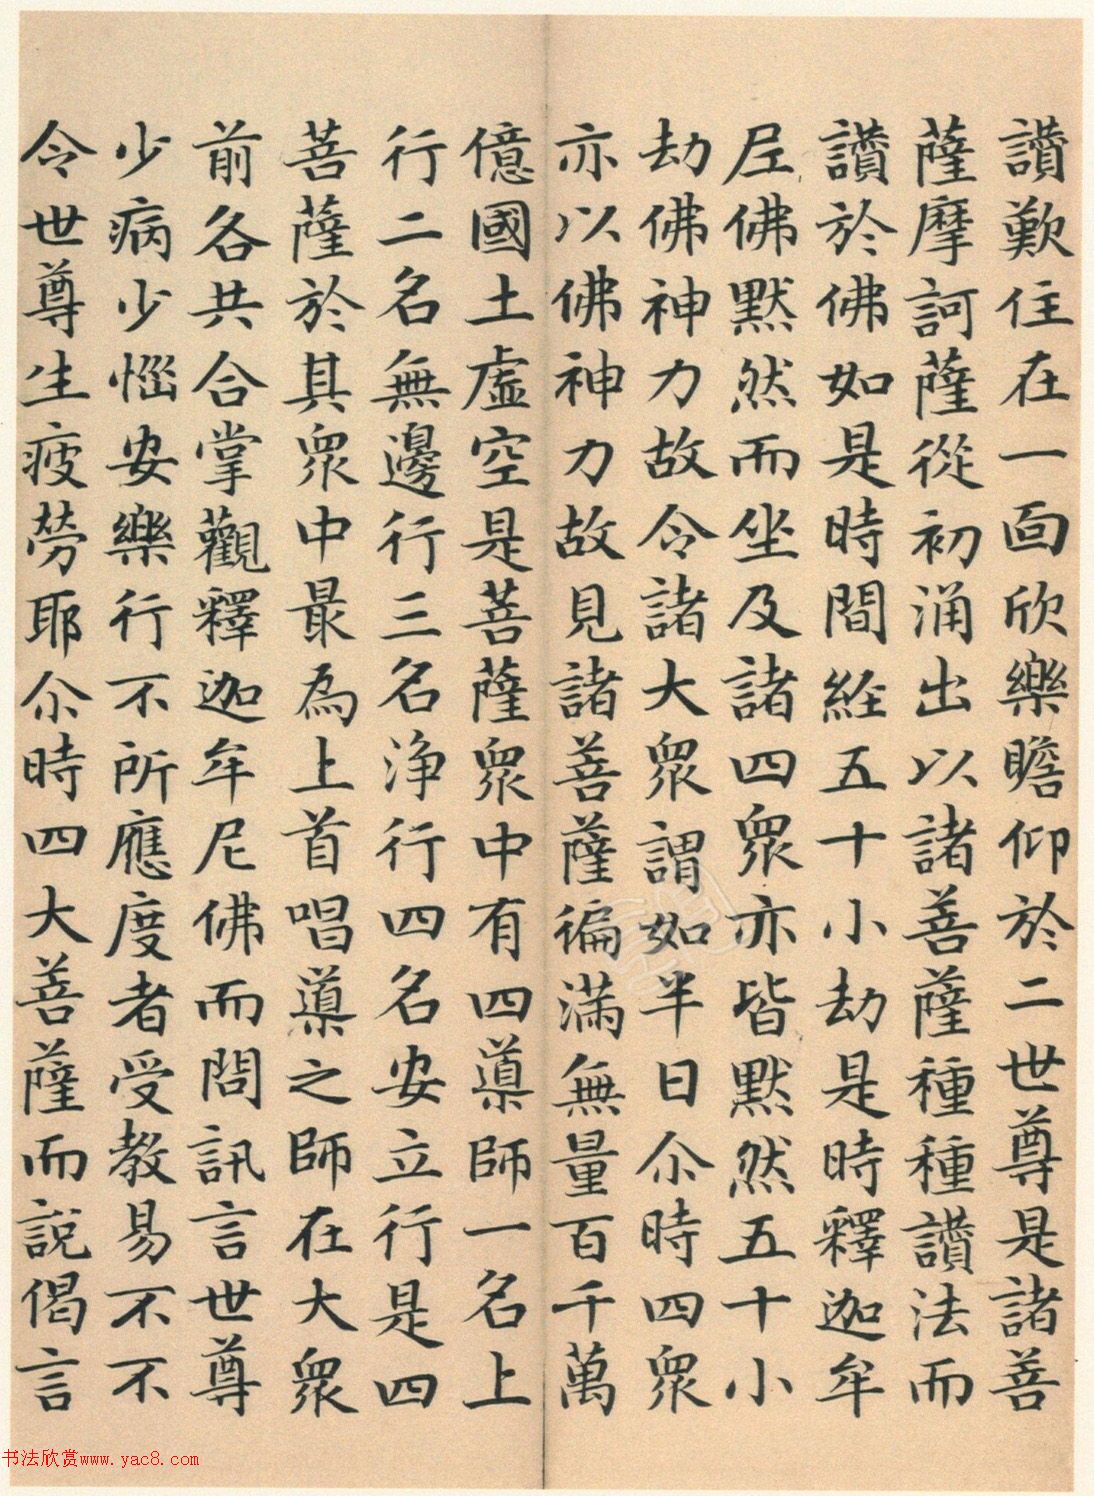 讚歎住在一面欣樂瞻仰於二世尊是諸菩
薩摩訶薩從初涌出以諸菩薩種種讚法而
讚於佛如是時間經五十小劫是時釋迦牟
尼佛默然而坐及諸四眾亦皆默然五十小
劫佛神力故令諸大眾謂如半日尒時四眾
亦以佛神力故見諸菩薩徧滿無量百千萬
億國土虛空是菩薩眾中有四導師一名上
行二名無邊行三名淨行四名安立行是四
菩薩於其眾中最為上首唱導之師在大眾
前各共合掌觀釋迦牟尼佛而問訊言世尊
少病少惱安樂行不所應度者受教易不不
令世尊生疲勞耶尒時四大菩薩而說偈言
书法欣赏www.yac8.com